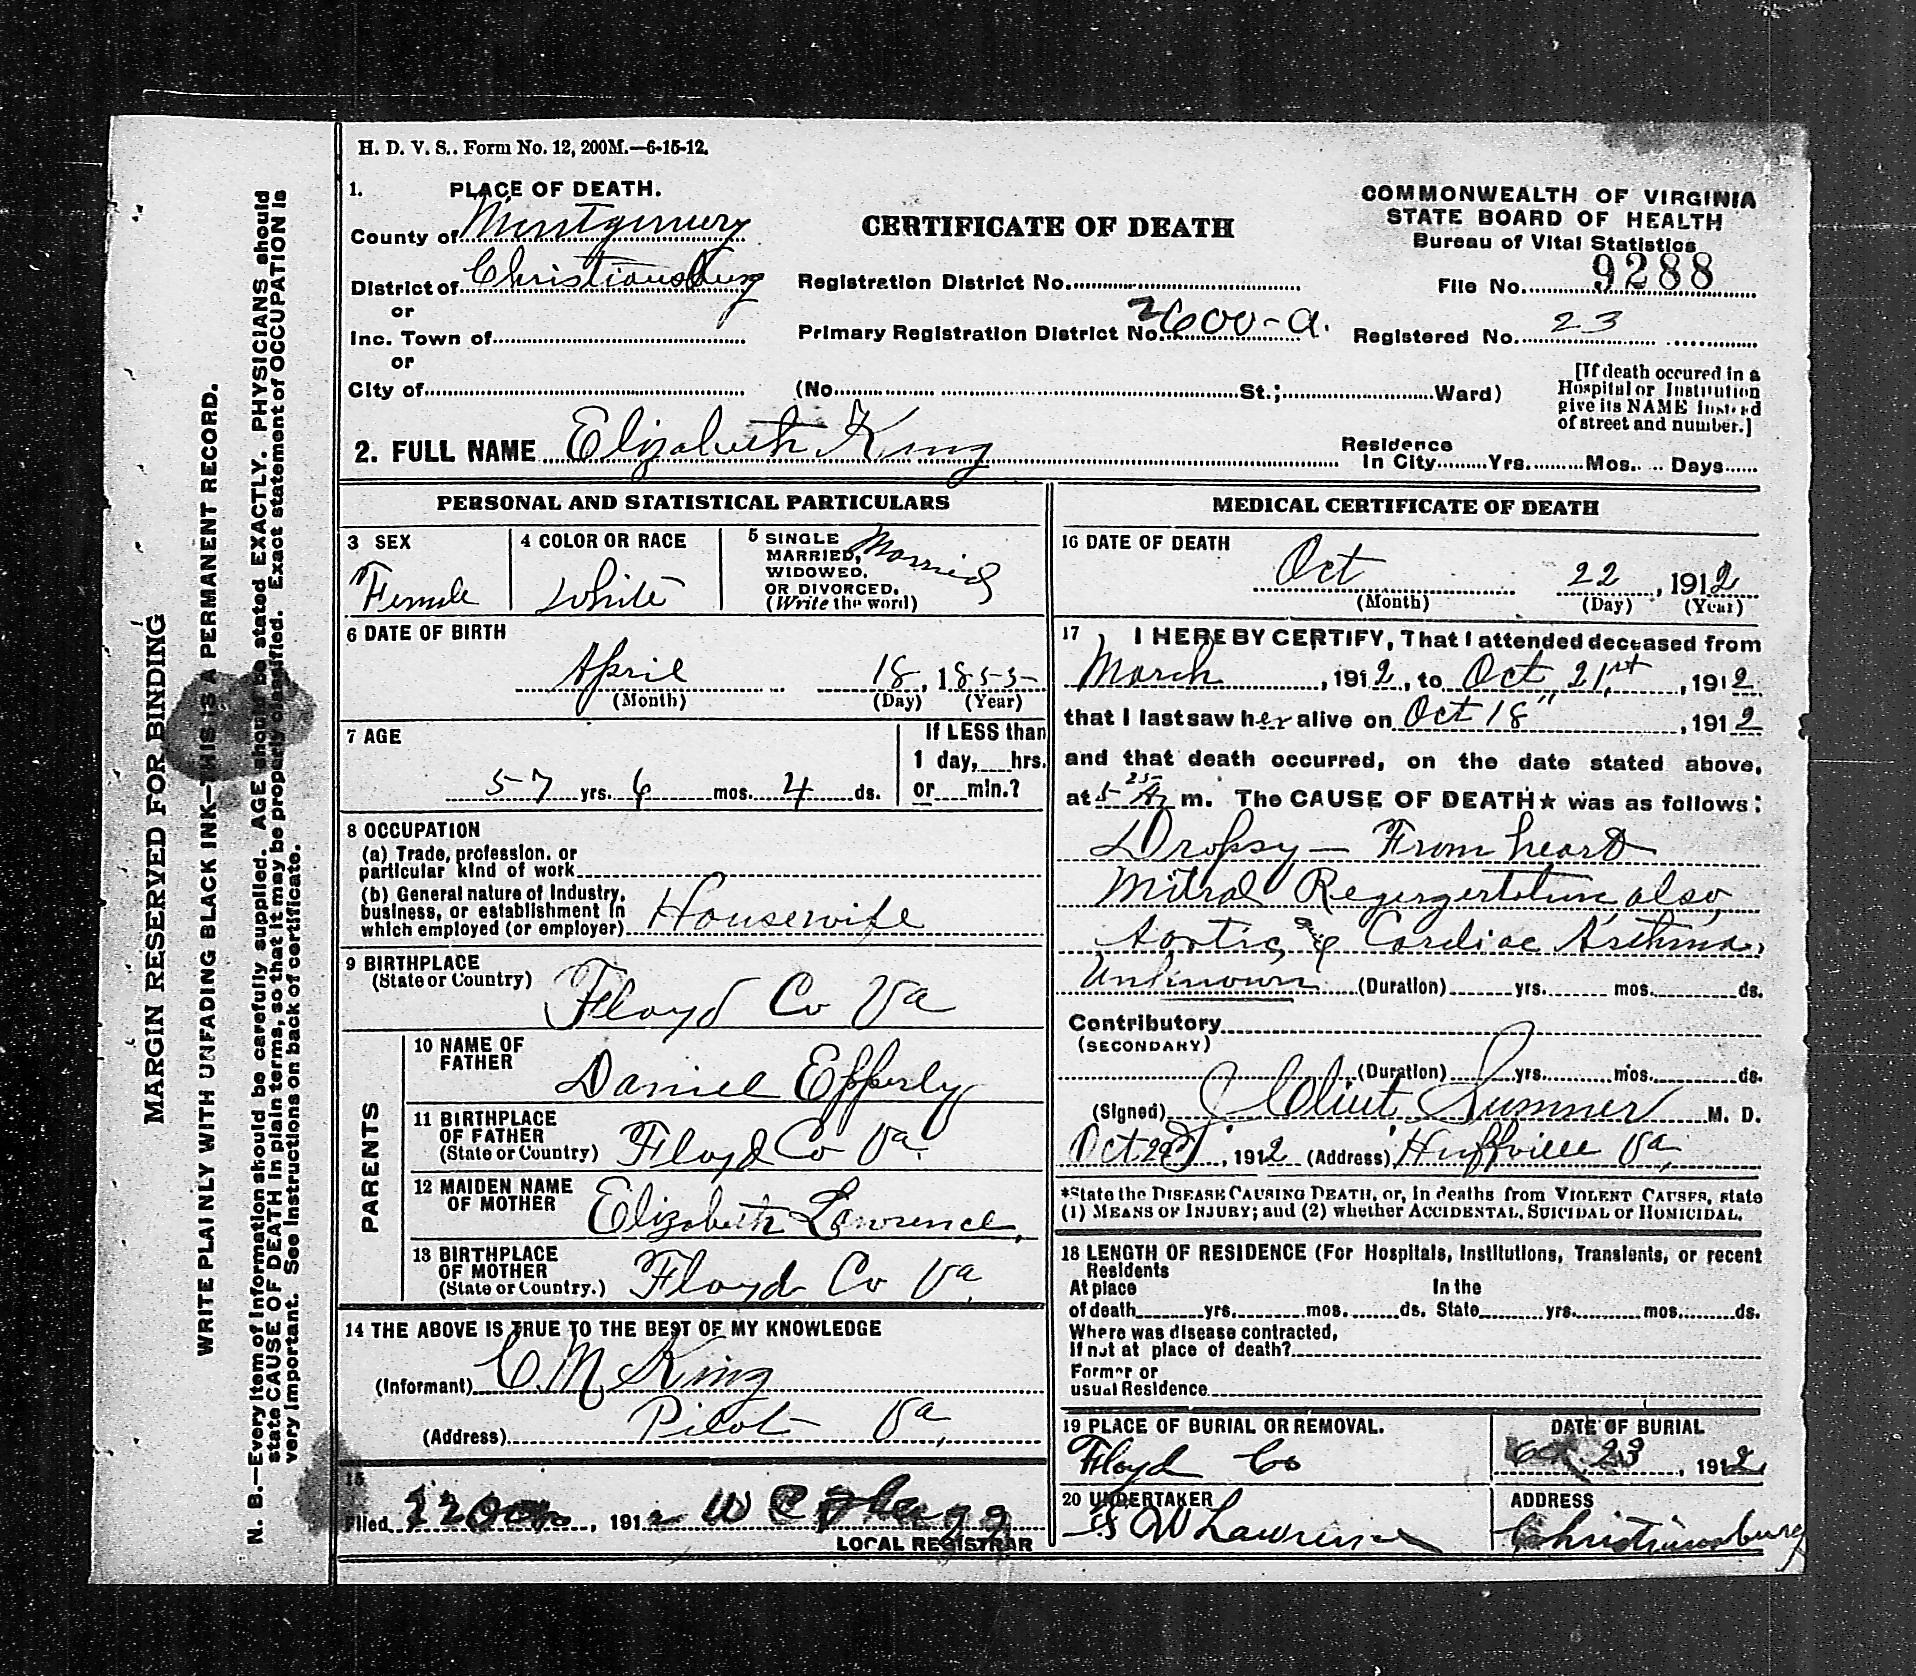 H. D. V. S.. Form No. 12, 200M.—6-15-12.
1. PLACE OF DEATH.
County of Montgomery
District of Christiansburg
or
Inc. Town of
or
City of
CERTIFICATE OF DEATH
Registration District No.
Primary Registration District No. 2600-a.
(No. St.; Ward)
COMMONWEALTH OF VIRGINIA
STATE BOARD OF HEALTH
Bureau of Vital Statistics
File No. 9288
Registered No. 23
[If death occured in a
Hospital or Institution
give its NAME instead
of street and number.]
2. FULL NAME Elizabeth King
Residence
In City Yrs. Mos. Days
PERSONAL AND STATISTICAL PARTICULARS
3 SEX
Female
4 COLOR OR RACE
White
5 SINGLE
MARRIED, Married
WIDOWED,
OR DIVORCED.
(Write the word)
6 DATE OF BIRTH
April 18, 1855
(Month) (Day) (Year)
7 AGE
57 yrs. 6 mos. 4 ds.
If LESS than
1 day, hrs.
or min.?
8 OCCUPATION
(a) Trade, profession. or
particular kind of work
(b) General nature of Industry,
business, or establishment in
which employed (or employer) Housewife
9 BIRTHPLACE
(State or Country)
Floyd Co Va
PARENTS
10 NAME OF
FATHER
Daniel Epperly
11 BIRTHPLACE
OF FATHER
(State or Country) Floyd Co Va
12 MAIDEN NAME
OF MOTHER
Elizabeth Lawrence,
13 BIRTHPLACE
OF MOTHER
(State or Country.) Floyd Co Va.
14 THE ABOVE IS TRUE TO THE BEST OF MY KNOWLEDGE
(Informant) C. M. King
(Address) Pilot Va.
15
Filed , 191
LOCAL REGISTRAR
MEDICAL CERTIFICATE OF DEATH
16 DATE OF DEATH
Oct 22, 1912
(Month) (Day) (Year)
17 I HEREBY CERTIFY, That I attended deceased from
March, 1912, to Oct 21st, 1912
that I last saw her alive on Oct 18", 1912
and that death occurred, on the date stated above,
at 5 25 A m. The CAUSE OF DEATH★ was as follows:
Dropsy — From heart
Mitral Regurgertation also
Aortic & Cardiac Asthma,
Unknown (Duration) yrs. mos. ds.
Contributory
(SECONDARY)
(Duration) yrs. mos. ds.
(Signed) J Clint Sumner M. D.
Oct , 1912 (Address) Huffville Va,
*State the DISEASE CAUSING DEATH, or, in deaths from VIOLENT CAUSES, state
(1) MEANS OF INJURY; and (2) whether ACCIDENTAL, SUICIDAL or HOMICIDAL.
18 LENGTH OF RESIDENCE (For Hospitals, Institutions, Transients, or recent
Residents
At place In the
of death yrs. mos. ds. State yrs. mos. ds.
Where was disease contracted,
If not at place of death?
Former or
usual Residence
19 PLACE OF BURIAL OR REMOVAL.
Floyd Co
DATE OF BURIAL
Oct 23, 1912
20 UNDERTAKER
W Lawrence
ADDRESS
Christiansburg
MARGIN RESERVED FOR BINDING
WRITE PLAINLY WITH UNFADING BLACK INK—THIS IS A PERMANENT RECORD.
N. B.—Every item of information should be carefully supplied. AGE should be stated EXACTLY. PHYSICIANS should
state CAUSE OF DEATH in plain terms, so that it may be properly classified. Exact statement of OCCUPATION is
very important. See instructions on back of certificate.